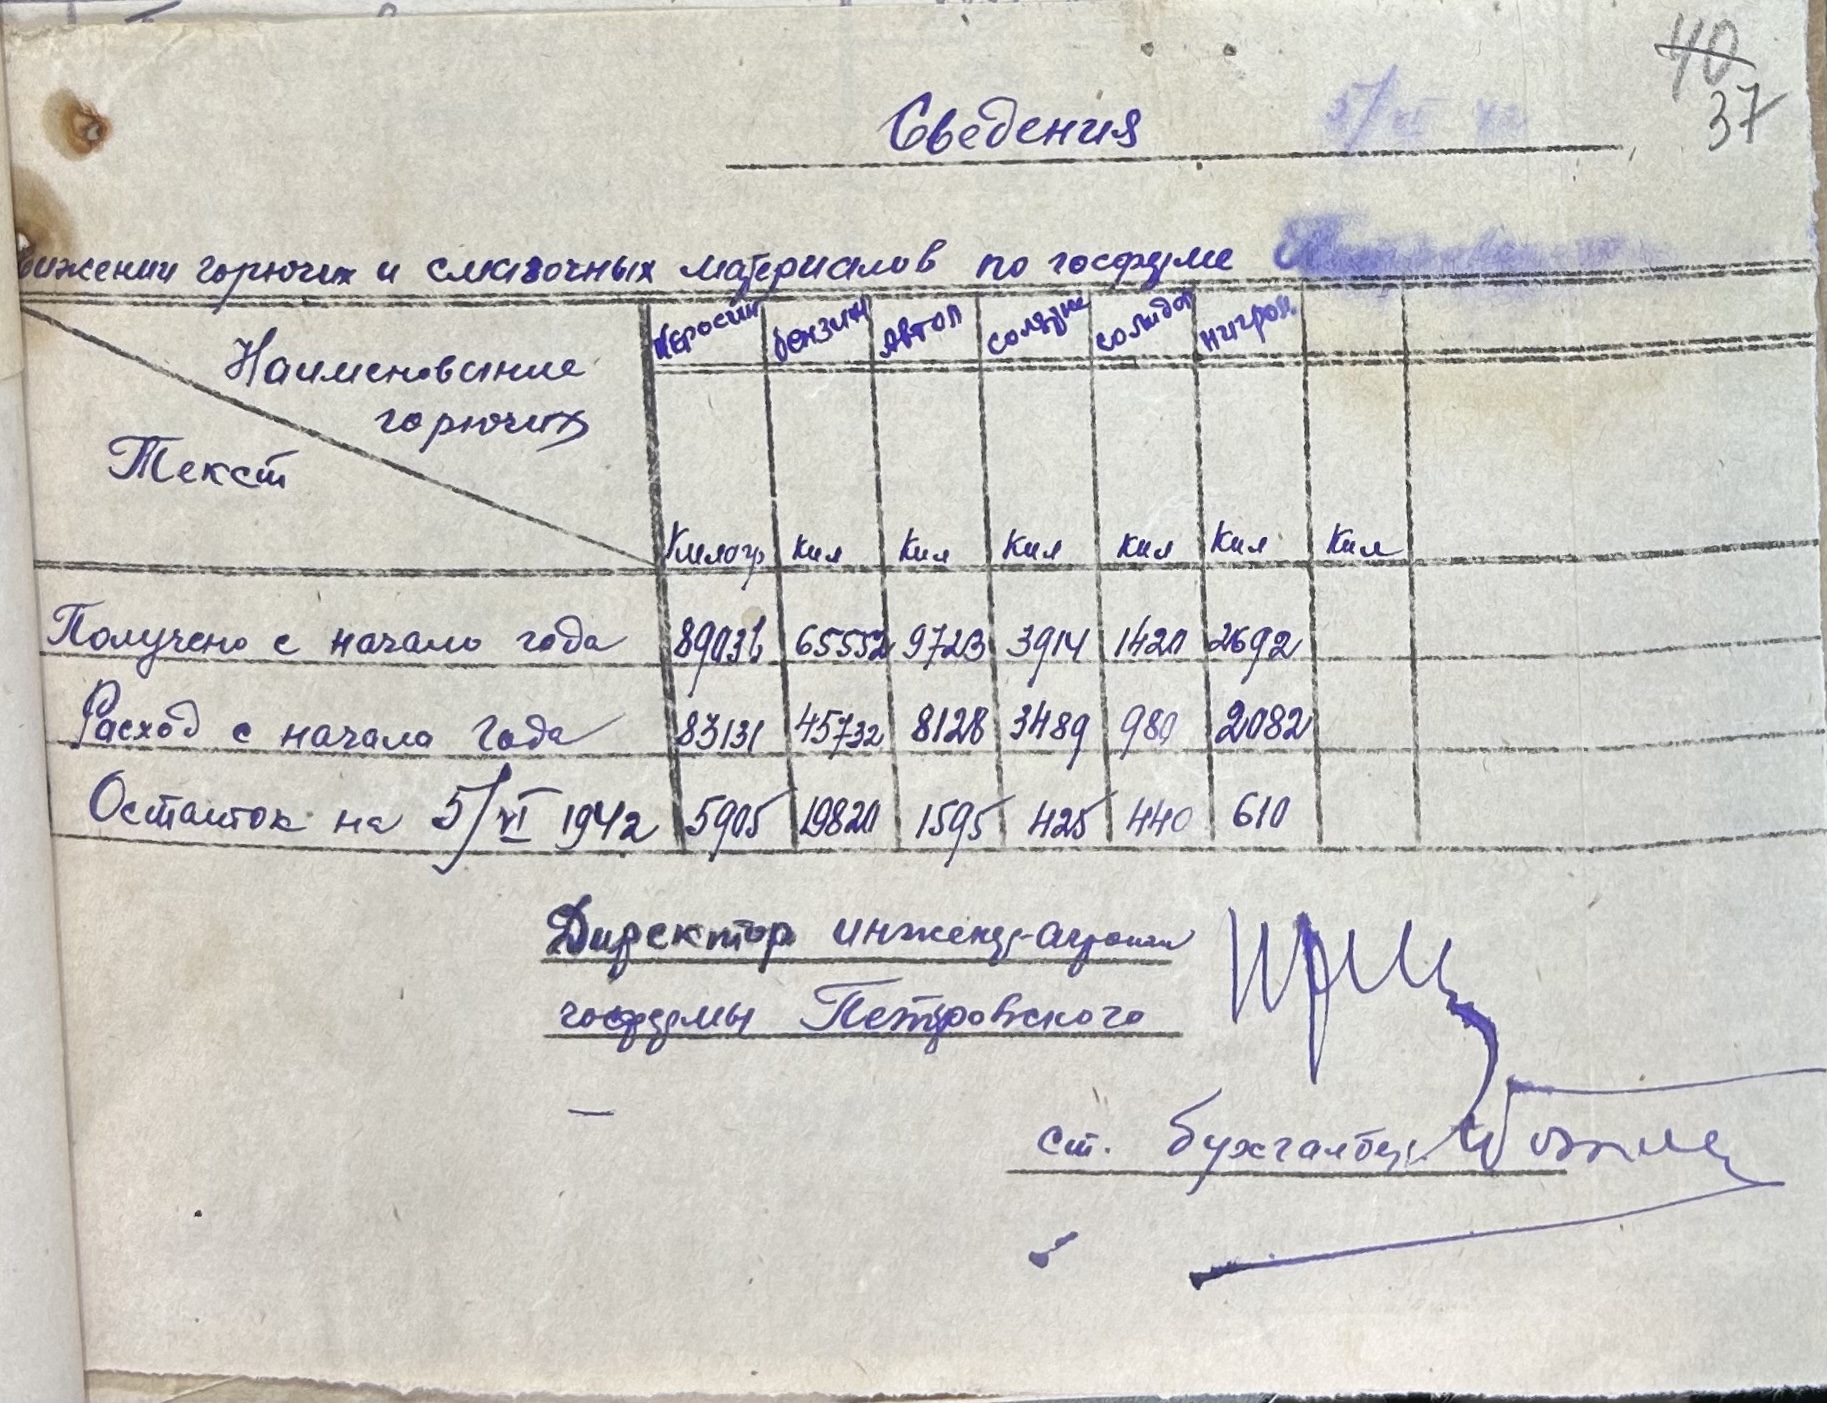 40
37
Сведения 5/VI 42
движении горючих и смазочных материалов по госфуме
Наименование горючих
Текст
Керосин бензин Автол солярк солидол нигрол
Килогр Кил Кил Кил Кил Кил Кил
Получено с начало года 89036 65552 9723 3914 1420 2692
Расход с начала года 83131 45732 8128 3489 980 2082
Остаток на 5/VI 1942 5905 19820 1595 425 440 610
Директор инженер-агроном
госфумы Петровского
ст. бухгалтер